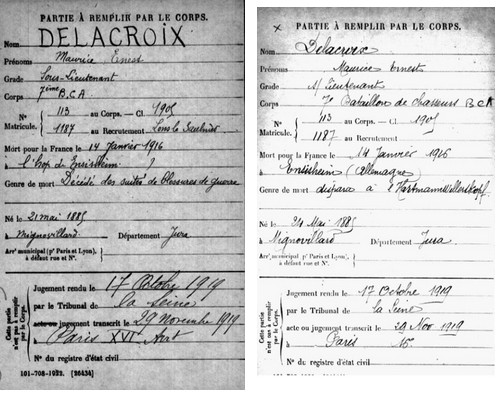 PARTIE À REMPLIR PAR LE CORPS.
Nom DELACROIX
Prénoms Maurice Ernest
Grade Sous-Lieutenant
Corps 7ème B.C.A
N° 113 au Corps. — Cl. 1905
Matricule. 1187 au Recrutement Lons le Saulnier
Mort pour la France le 14 Janvier 1916
à l'hop. d'Ensisheim ?
Genre de mort Décédé des suites de blessures de guerre
Né le 21 mai 1885
à Mignovillard Département Jura
Arrt municipal (pr Paris et Lyon), à défaut rue et N°.
Cette partie n'est pas à remplir par le Corps.
Jugement rendu le 17 Octobre 1919
par le Tribunal de la Seine
acte ou jugement transcrit le 29 Novembre 1919
à Paris XVIe Arrt
N° du registre d'état civil
101-708-1922. [26434]
× PARTIE À REMPLIR PAR LE CORPS.
Nom Delacroix
Prénoms Maurice Ernest
Grade S/ Lieutenant
Corps 7e Bataillon de chasseurs B.C.A
N° 113 au Corps. — Cl. 1905
Matricule. 1187 au Recrutement
Mort pour la France le 14 Janvier 1916
à Ensisheim (Allemagne)
Genre de mort disparu à l'Hartmannwillerskopf.
Né le 21 Mai 1885
à Mignovillard Département Jura
Arrt municipal (pr Paris et Lyon), à défaut rue et N°.
Cette partie n'est pas à remplir par le Corps.
Jugement rendu le 17 Octobre 1919
par le Tribunal de la Seine
acte ou jugement transcrit le 29 Nov 1919
à Paris 16e
N° du registre d'état civil